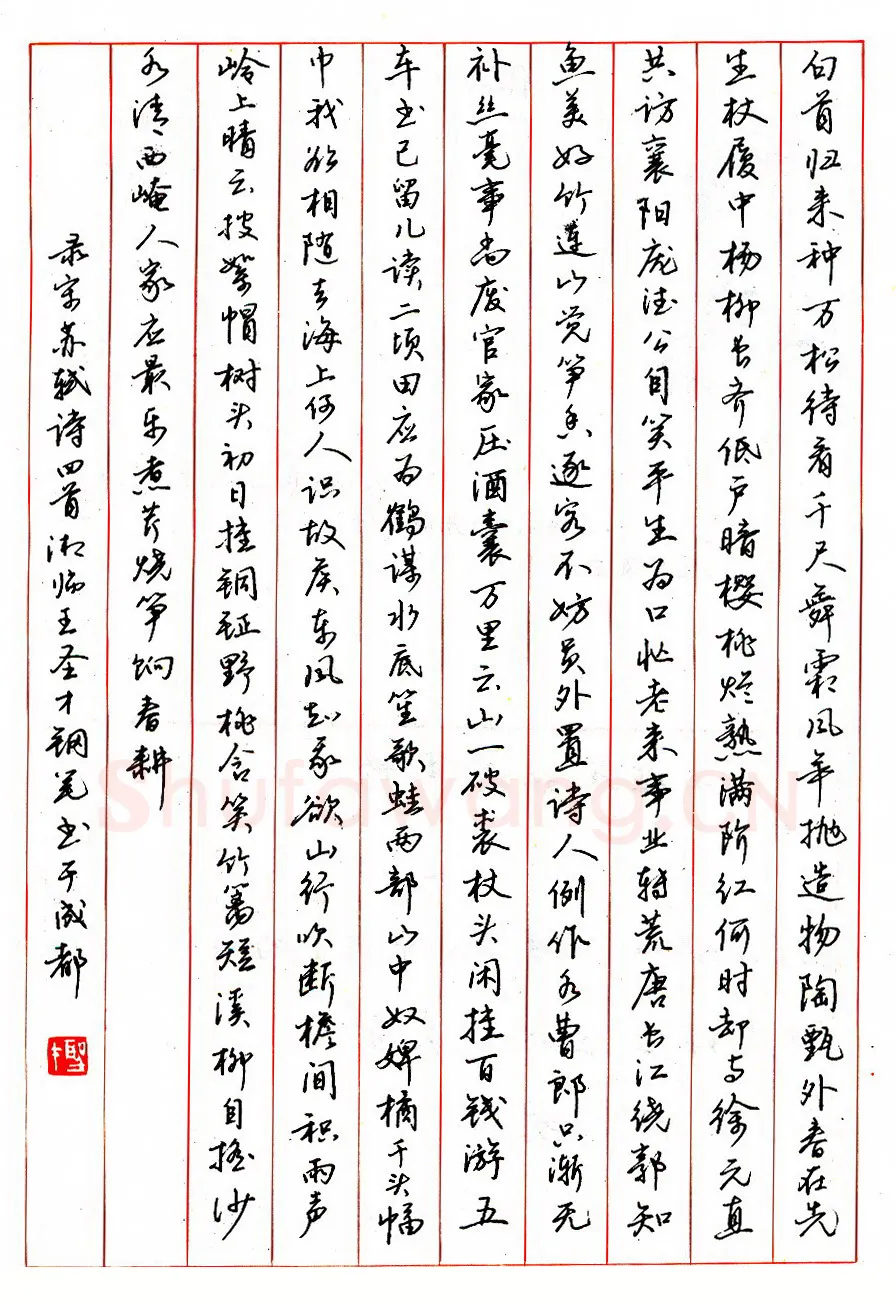 白首归来种万松待看千尺舞霜风年抛造物陶甄外春在先
生杖履中杨柳长齐低户暗樱桃烂熟满阶红何时却与徐元直
共访襄阳庞德公自笑平生为口忙老来事业转荒唐长江绕郭知
鱼美好竹连山觉笋香逐客不妨员外置诗人例作水曹郎只渐无
补丝毫事尚废官家压酒囊万里云山一破裘杖头闲挂百钱游五
车书已留儿读二顷田应为鹤谋水底笙歌蛙两部山中奴婢橘千头幅
巾我欲相随去海上何人识故侯东风知我欲山行吹断檐间积雨声
岭上晴云披絮帽树头初日挂铜钲野桃含笑竹篱短溪柳自摇沙
水清西崦人家应最乐煮芹烧笋饷春耕
录宋苏轼诗四首湘临王圣才钢笔书于成都
聖才
Shufawang.CN